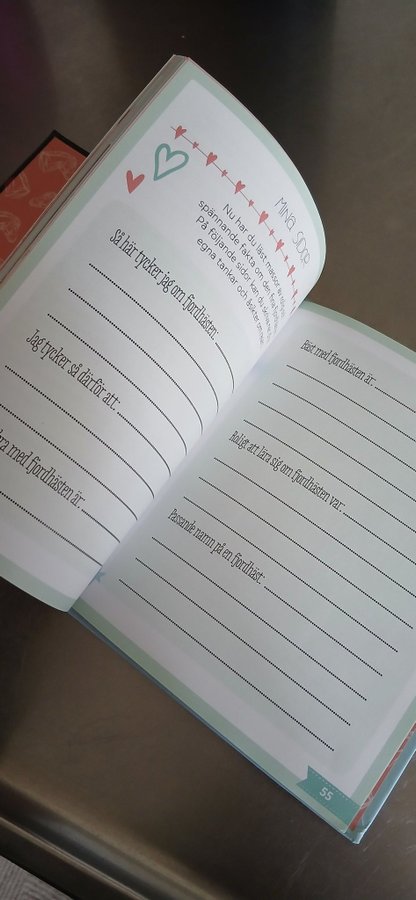 MINA SIDOR
Nu har du läst massor av
spännande fakta om den fina
På följande sidor kan du skriva
egna tankar och åsikter om
Så här tycker jag om fjordhästen:
Jag tycker så därför att:
med fjordhästen är:
Bäst med fjordhästen är:
Roligt att lära sig om fjordhästen var:
Passande namn på en fjordhäst:
55